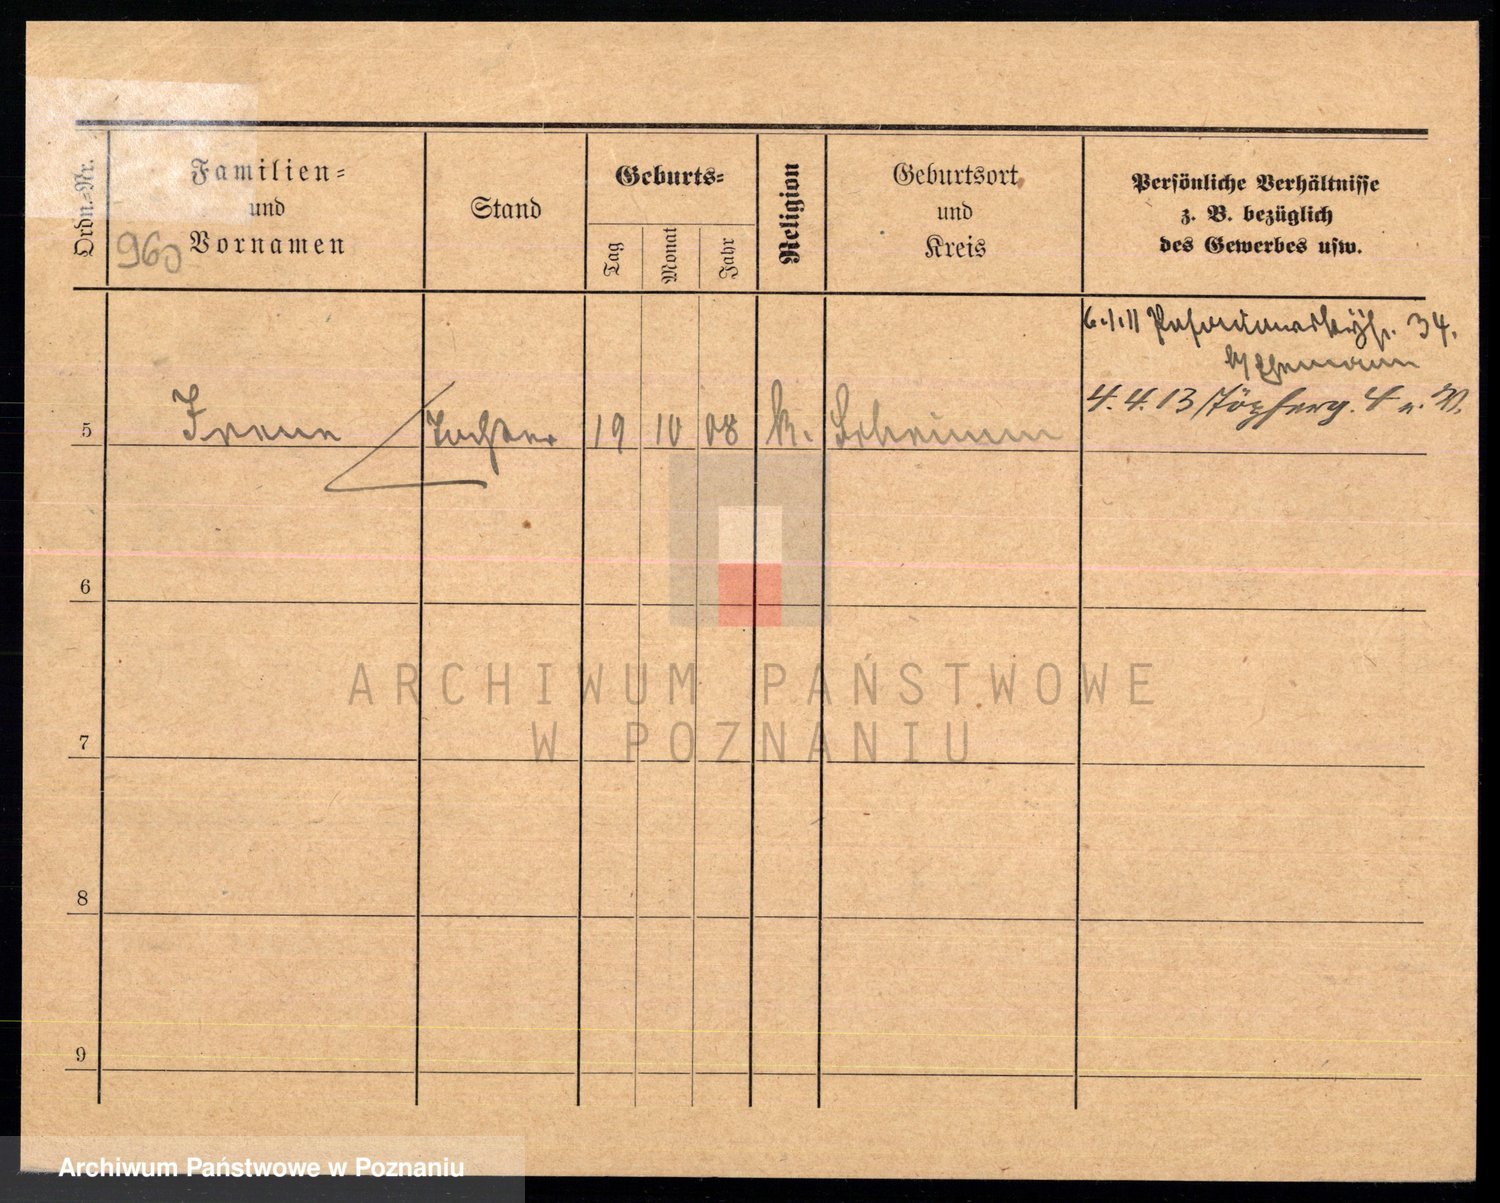 Ordn.-Nr.
Familien-
und
Vornamen
960
Stand
Geburts-
Tag
Monat
Jahr
Religion
Geburtsort
und
Kreis
Persönliche Verhältnisse
z. B. bezüglich
des Gewerbes usw.
6.1.11 34.
4.4.13 Töpferg. 4
5 Irene Tochter 19 10 08 k.
6
7
8
9
ARCHIWUM PAŃSTWOWE
W POZNANIU
Archiwum Państwowe w Poznaniu